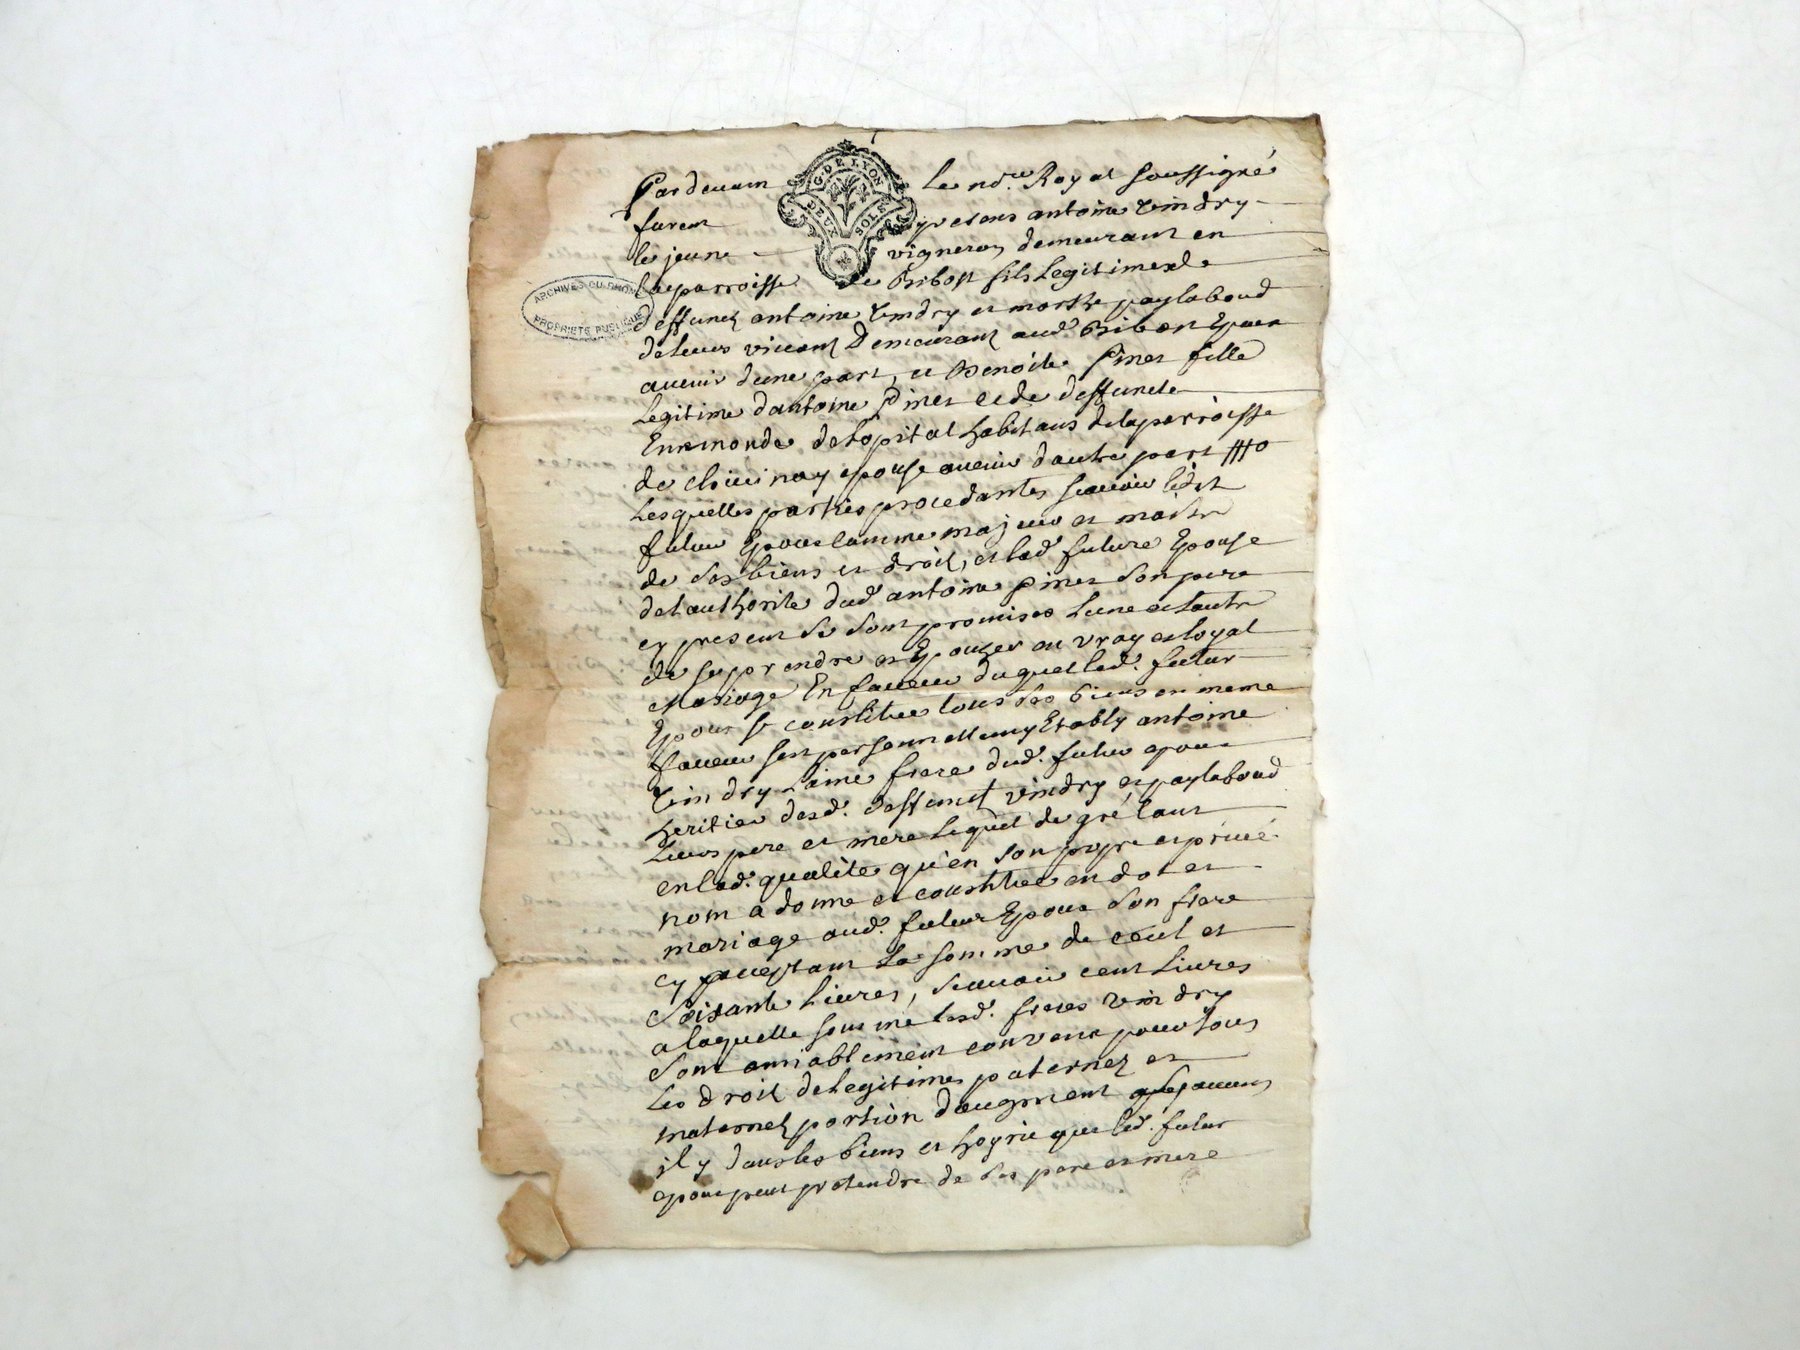 G. DE LYON
DEUX SOLS
ARCHIVES DU RHÔNE
PROPRIÉTÉ PUBLIQUE
Pardevant le nore. Royal soussigné
furent presens antoine vindry
le jeune vigneron demeurant en
la parroisse de Bibost fils legitime de
deffunct antoine vindry et marthe paylaboud
de leurs vivant demeurant aud. Bibost Epoux
avenir d'une part, et Benoite Pinet fille
legitime d'antoine Pinet et de deffuncte
Enemonde de lopital habitans de la parroisse
de chivinay epouse avenir d'autre part
Lesquelles parties procedantes scavoir ledit
futur Epoux comme majeur et maitre
de ses biens et droit, et lad. future Epouse
de l'authorite dud. antoine pinet son pere
cy present se sont promises l'une et l'autre
de se prendre et Epouzer en vray et loyal
Mariage En faveur duquel led. futur
Epoux se constitue tous ses biens en meme
faveur s'est personnellement Etably antoine
vindry L'ainé frere dud. futur epoux
heritier desd. deffunct vindry et paylaboud
Leurs pere et mere lequel de gré tant
en lad. qualite qu'en son propre et privé
nom a donne et constitue en dot et
mariage aud. futur Epoux son frere
cy acceptant la somme de cent et
Soixante livres, scavoir cent livres
a laquelle somme lesd. freres vindry
sont amiablement convenu pour tous
les droit de legitimes paternel et
maternel portion d'augment
il y dans les biens et hoyrie que led. futur
epoux peut pretendre de ses pere et mere